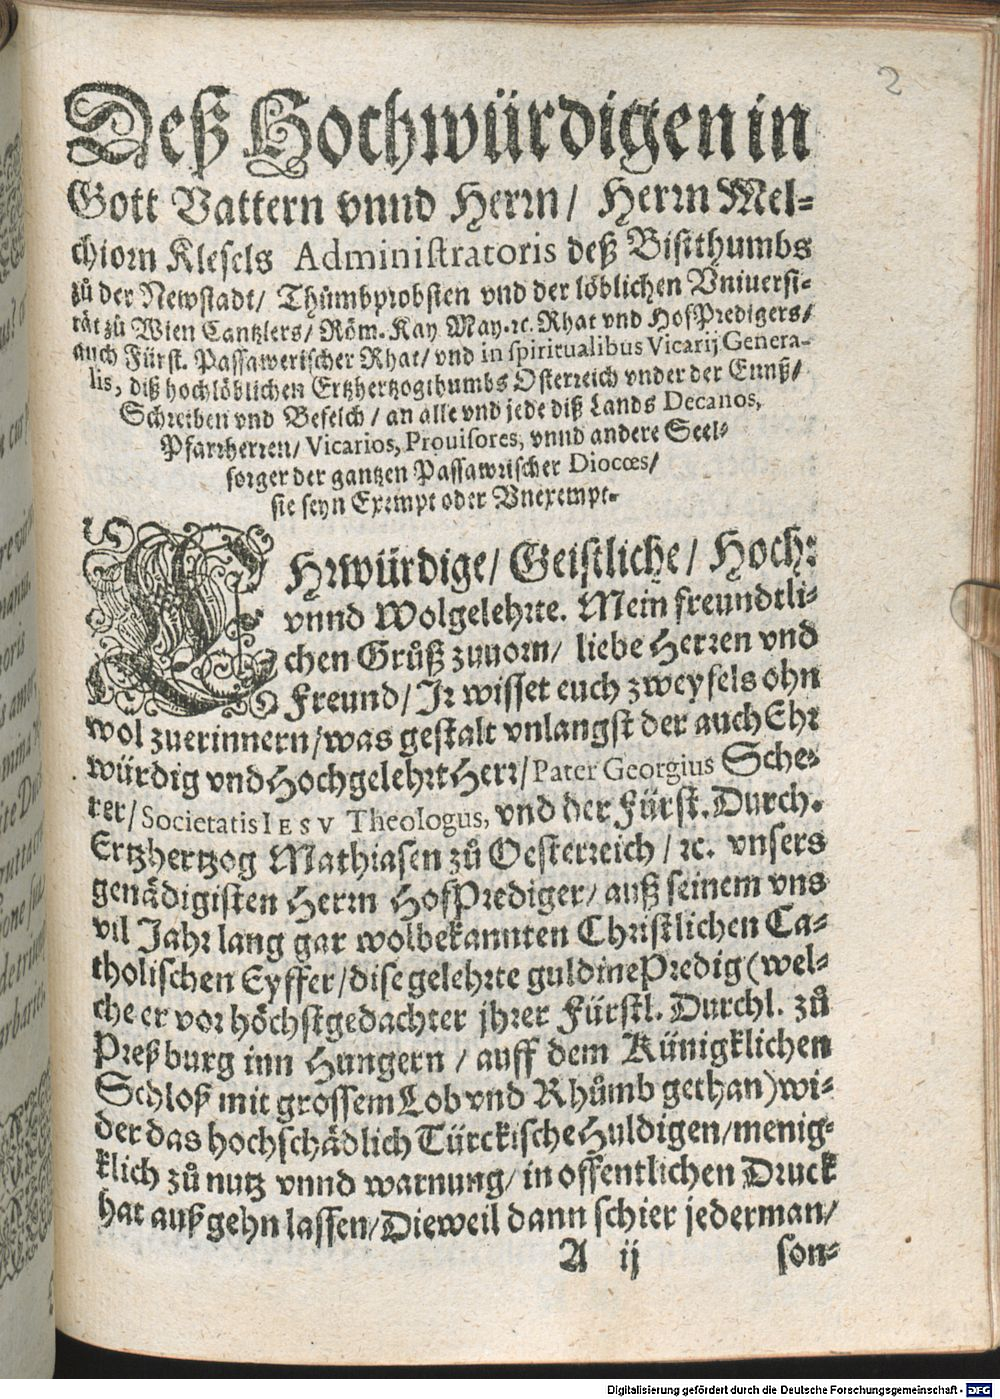 2
Deß Hochwürdigen in
Gott Vattern vnnd Herrn/ Herrn Mel-
chiorn Klesels Administratoris deß Bistthumbs
zů der Newstadt/ Thůmbprobsten vnd der löblichen Vniuersi-
tät zů Wien Cantzlers/ Röm. Kay May. ꝛc. Rhat vnd HofPredigers/
auch Fürst. Passawerischer Rhat/ vnd in spiritualibus Vicarij Genera-
lis, diß hochlöblichen Ertzhertzogthumbs Osterreich vnder der Ennß/
Schreiben vnd Befelch/ an alle vnd jede diß Lands Decanos,
Pfarrherren/ Vicarios, Prouisores, vnnd andere Seel-
sorger der gantzen Passawrischer Diocœs/
sie seyn Exempt oder Vnexempt.
EHrwürdige/ Geistliche/ Hoch:
vnnd Wolgelehrte. Mein freundtli-
chen Grůß zuuorn/ liebe Herren vnd
Freund/ Jr wisset euch zweyfels ohn
wol zuerinnern/ was gestalt vnlangst der auch Ehr
würdig vnd Hochgelehrt Herr/ Pater Georgius Sche-
rer/ Societatis IESV Theologus, vnd der Fürst. Durch.
Ertzhertzog Mathiasen zů Oesterreich/ ꝛc. vnsers
genädigisten Herrn HofPrediger/ auß seinem vns
vil Jahr lang gar wolbekannten Christlichen Ca-
tholischen Eyffer/ dise gelehrte guldine Predig (wel-
che er vor höchstgedachter jhrer Fürstl. Durchl. zů
Preßburg inn Hungern/ auff dem Künigklichen
Schloß mit grossem Lob vnd Rhůmb gethan) wi-
der das hochschädlich Türckische Huldigen/ menig-
klich zů nutz vnnd warnung/ in offentlichen Druck
hat außgehn lassen/ Dieweil dann schier jederman/
A ij son-
Digitalisierung gefördert durch die Deutsche Forschungsgemeinschaft - DFG